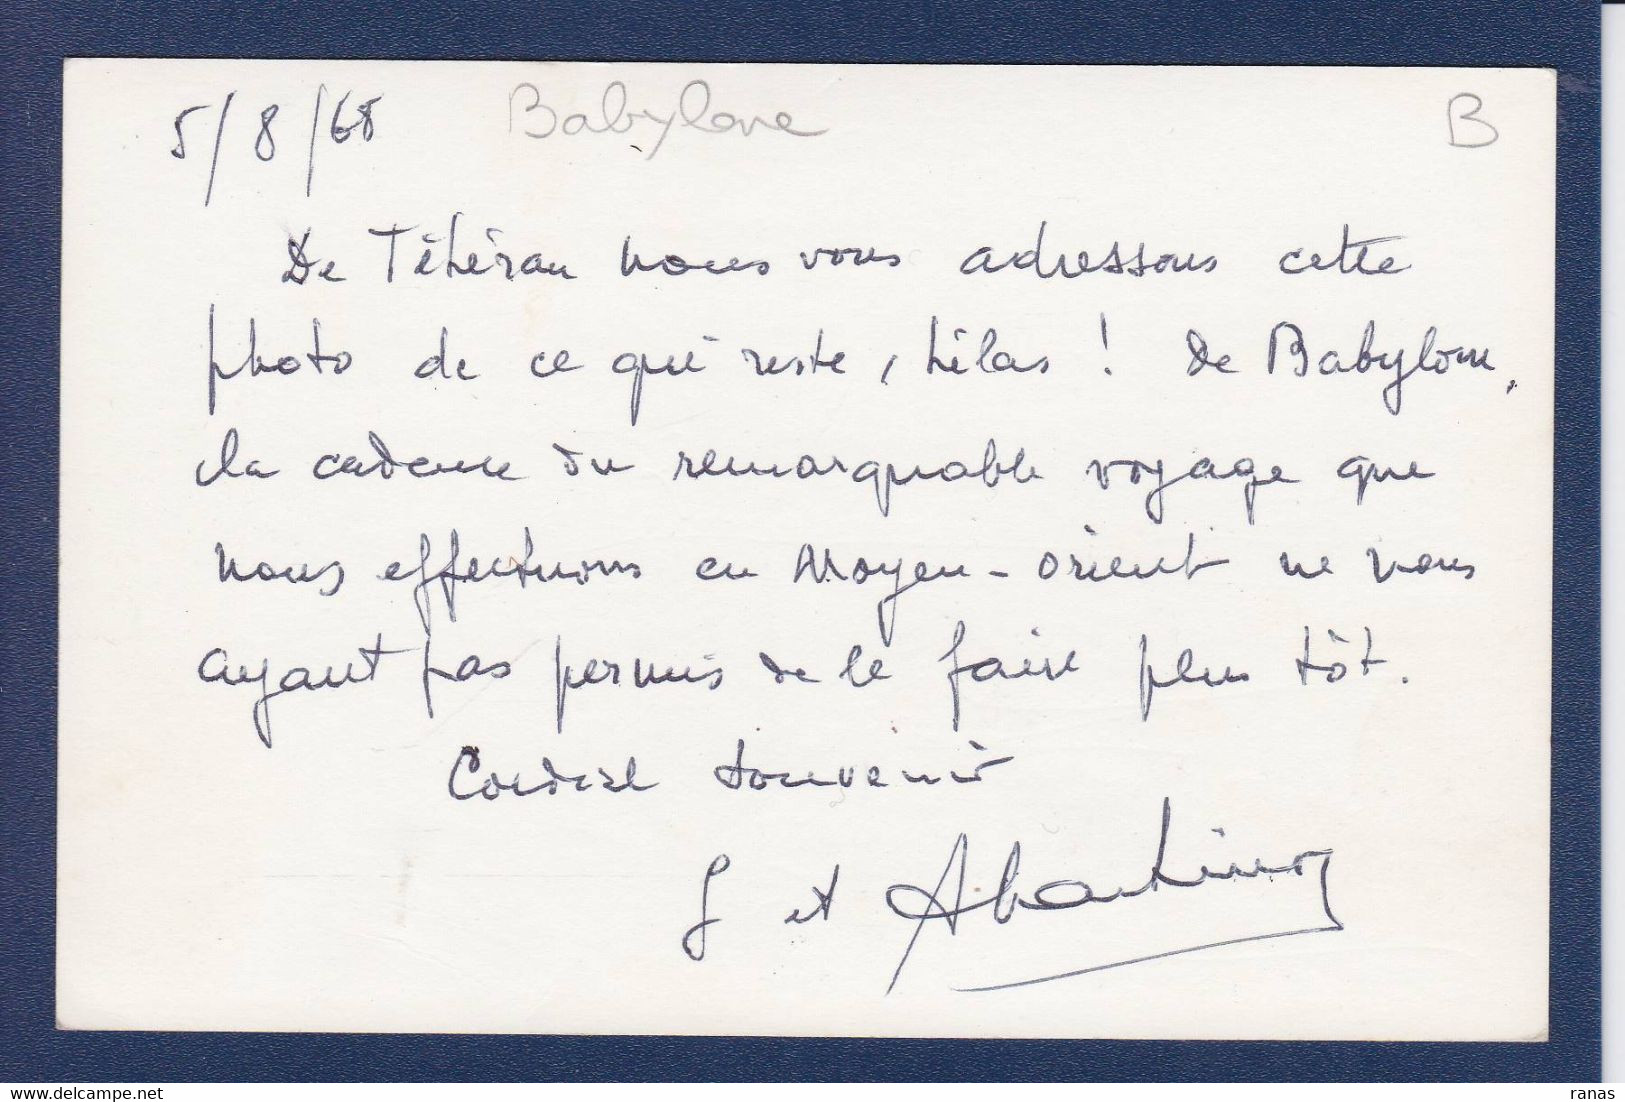 5/8/68 Babylone B
De Téhéran nous vous adressons cette
photo de ce qui reste, hélas ! de Babylone,
la cadence du remarquable voyage que
nous effectuons en Moyen-Orient ne nous
ayant pas permis de le faire plus tôt.
Cordial souvenir
et
delcampe.net
ranas